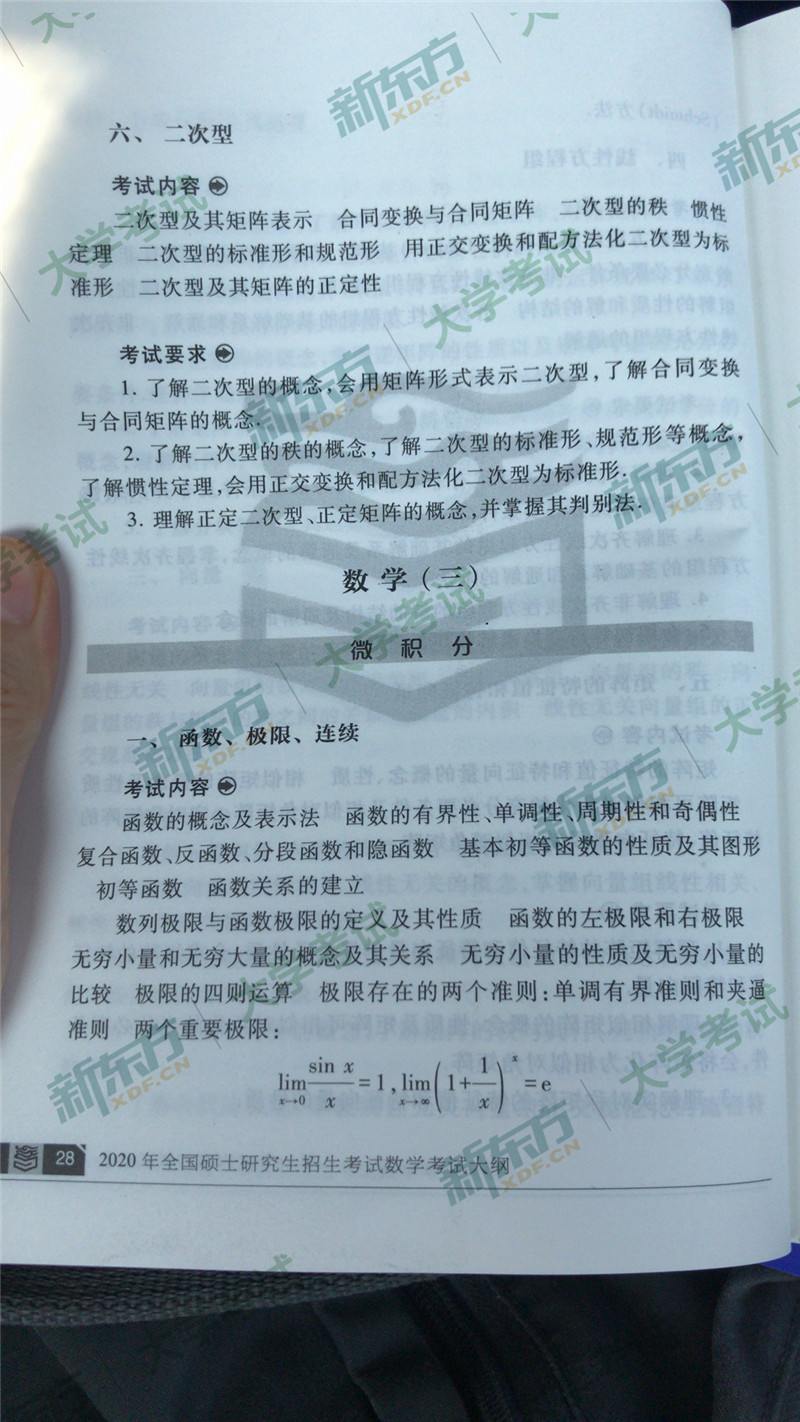 六、 二次型
考试内容
二次型及其矩阵表示 合同变换与合同矩阵 二次型的秩 惯性
定理 二次型的标准形和规范形 用正交变换和配方法化二次型为标
准形 二次型及其矩阵的正定性
考试要求
1. 了解二次型的概念,会用矩阵形式表示二次型,了解合同变换
与合同矩阵的概念.
2. 了解二次型的秩的概念,了解二次型的标准形、规范形等概念,
了解惯性定理,会用正交变换和配方法化二次型为标准形.
3. 理解正定二次型、正定矩阵的概念,并掌握其判别法.
数学(三)
微积分
一、 函数、极限、连续
考试内容
函数的概念及表示法 函数的有界性、单调性、周期性和奇偶性
复合函数、反函数、分段函数和隐函数 基本初等函数的性质及其图形
初等函数 函数关系的建立
数列极限与函数极限的定义及其性质 函数的左极限和右极限
无穷小量和无穷大量的概念及其关系 无穷小量的性质及无穷小量的
比较 极限的四则运算 极限存在的两个准则:单调有界准则和夹逼
准则 两个重要极限:
lim x→0 sin x / x = 1, lim x→∞ (1 + 1/x)^x = e
28 2020年全国硕士研究生招生考试数学考试大纲
新东方 XDF.CN
大学考试